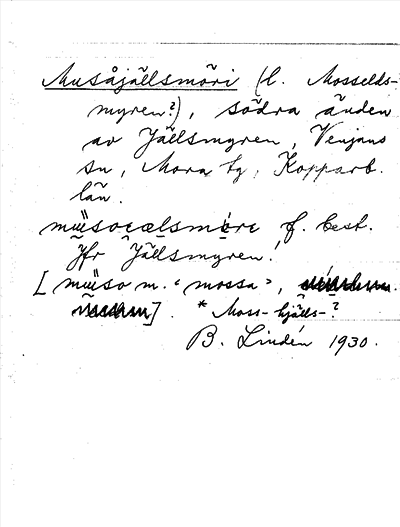 Musåjällsmöri (l. Mosselds-
myren?), södra änden
av Jällsmyren, Venjans
sn, Mora tg, Kopparb.
län.
f. best.
Jfr Jällsmyren!
m. "mossa",
* Moss- kjälls-?
B. Lindén 1930.